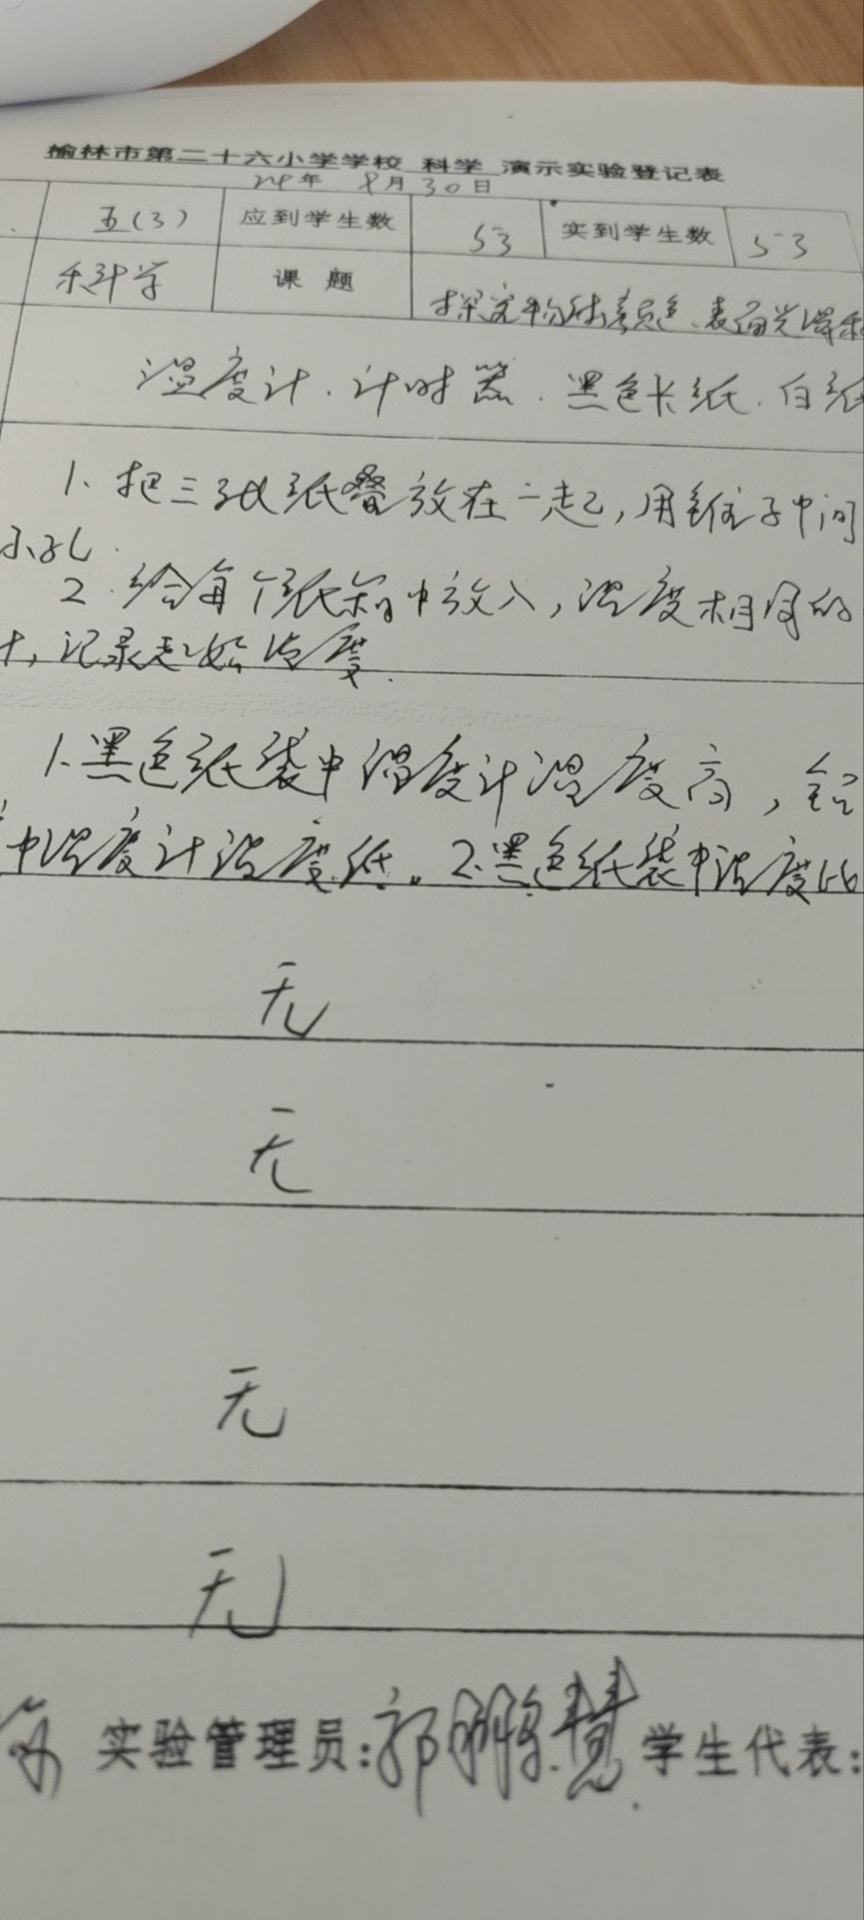 榆林市第二十六小学学校 科学 演示实验登记表
24年 8月30日
五(3) 应到学生数 53 实到学生数 53
科学 课 题 探究物体颜色、表面光滑
温度计.计时器.黑色卡纸.白纸
1、把三张纸叠放在一起,用锥子中间
小孔.
2.给每个纸袋中放入,温度相同的
计,记录起始温度.
1.黑色纸袋中温度计温度高,铝
中温度计温度低。2.黑色纸袋中温度比
无
无
无
无
实验管理员:郭鹏慧 学生代表: